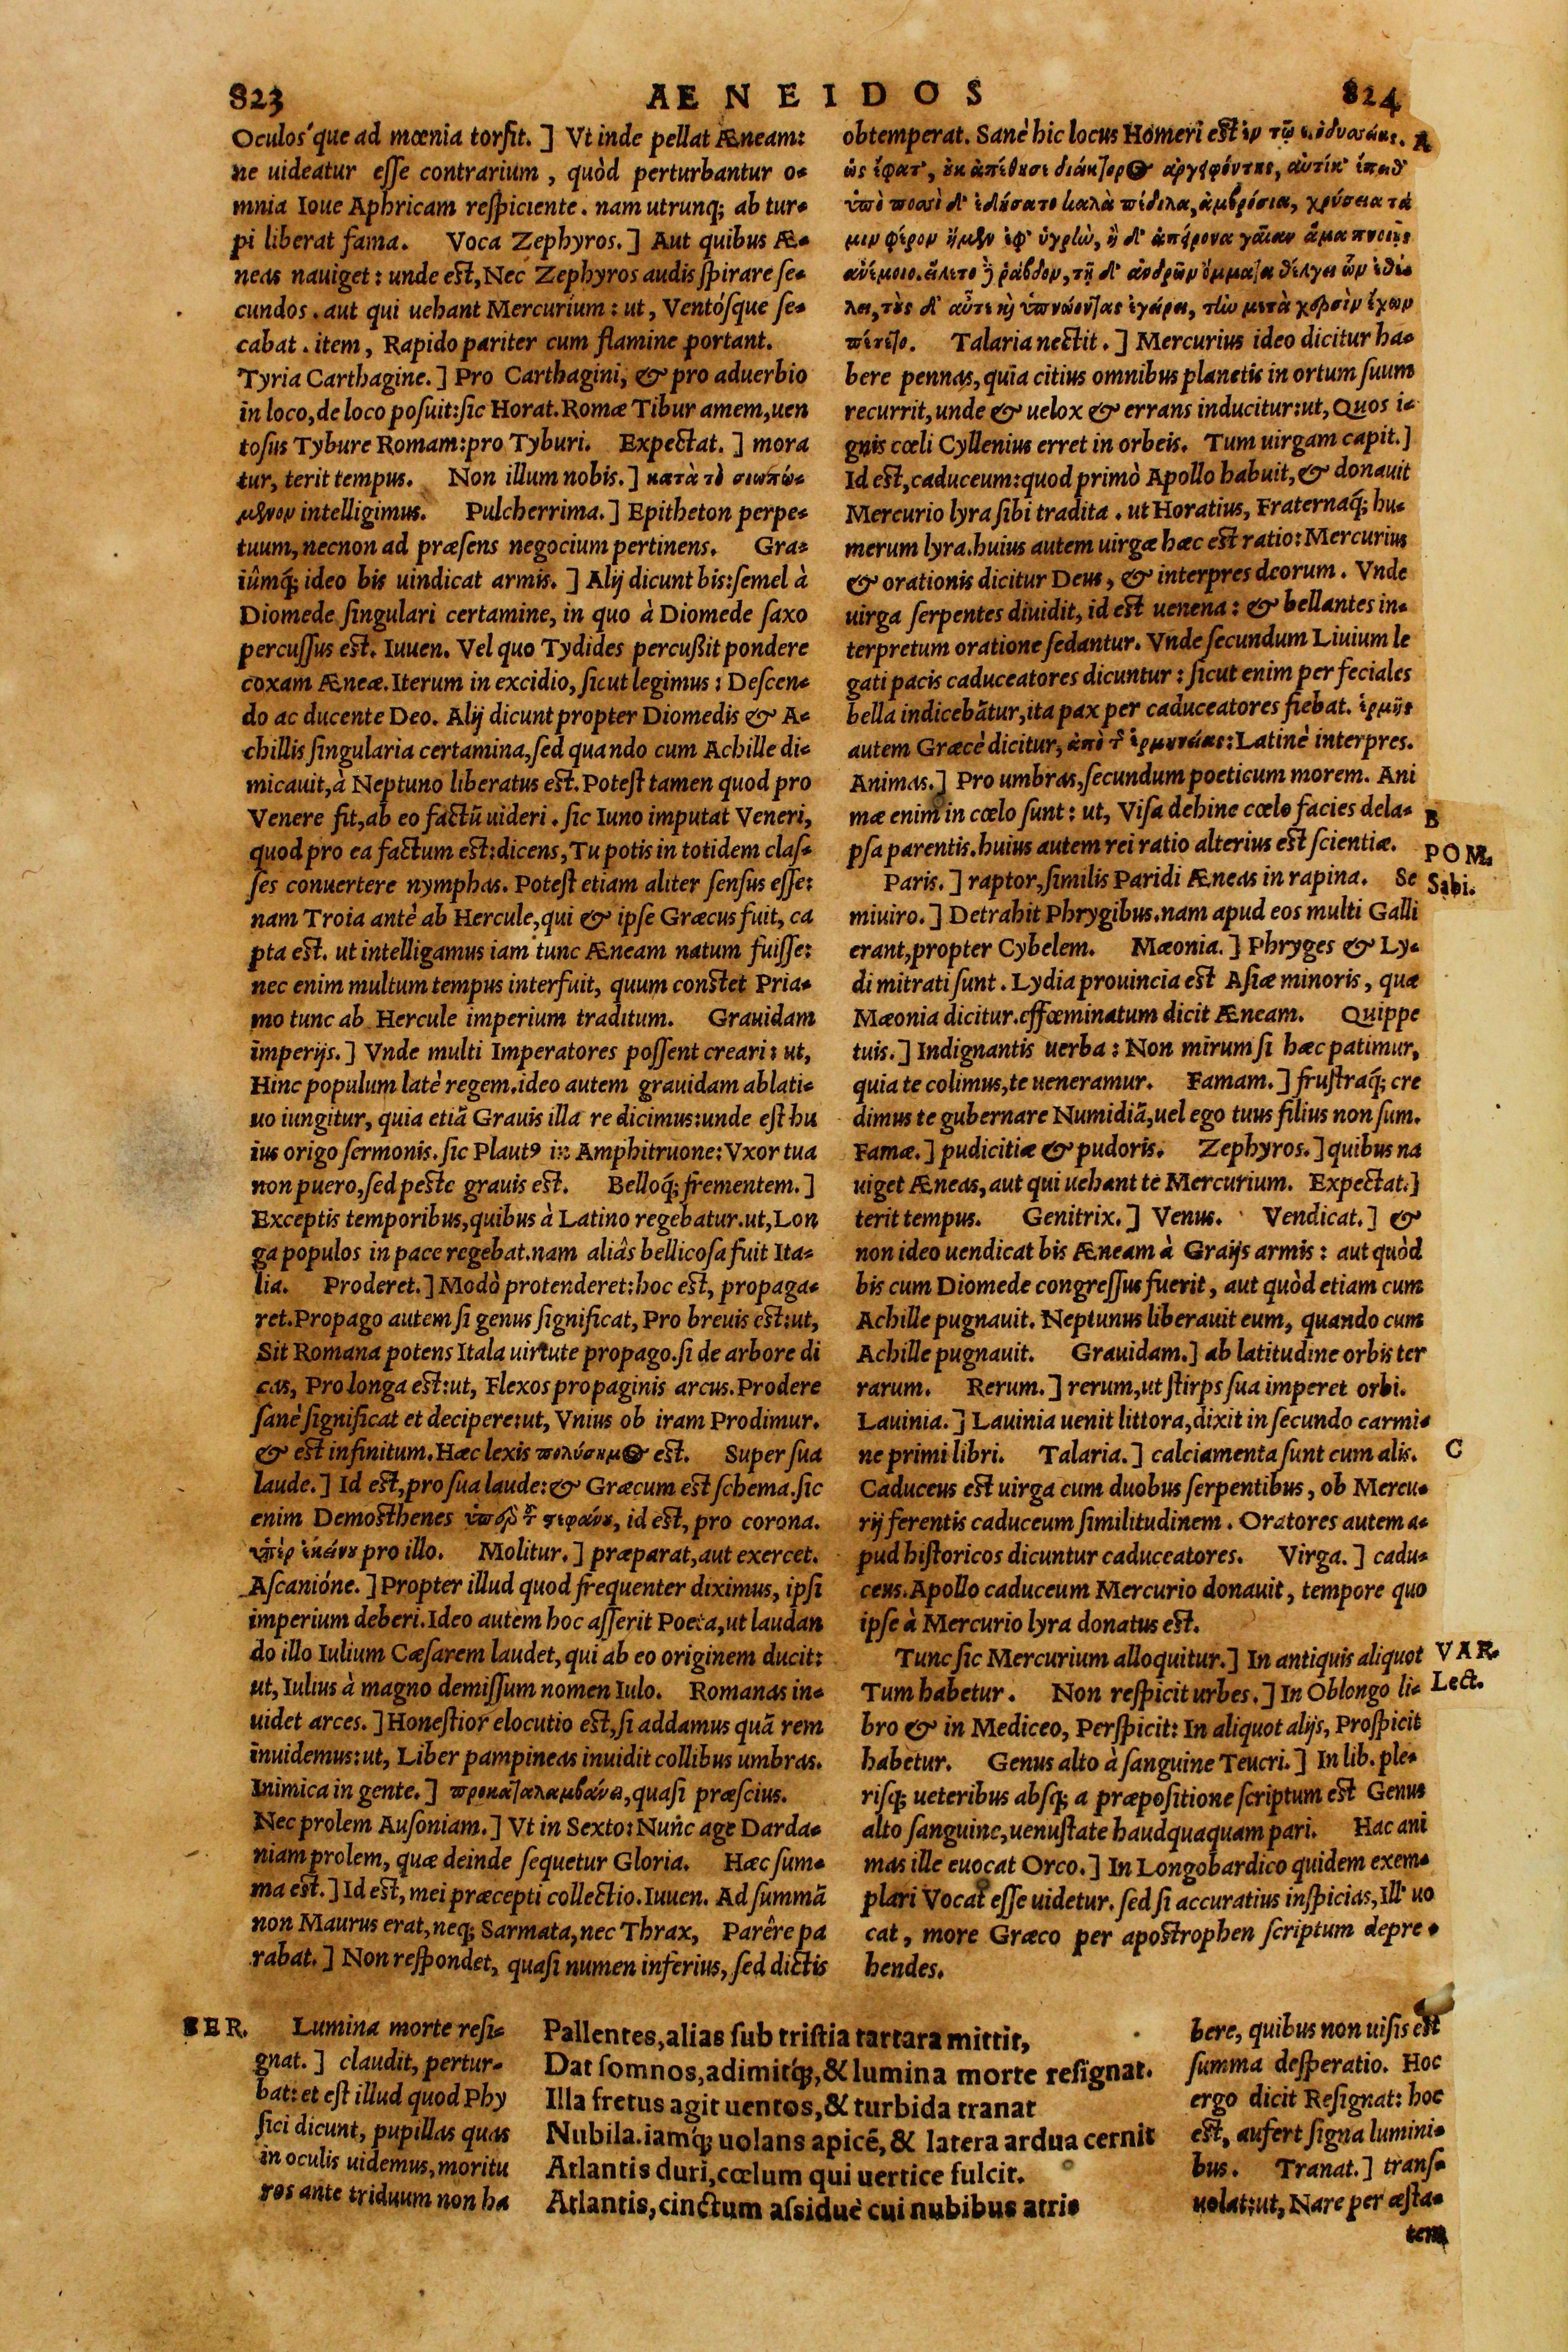 823
AENEIDOS
824
Oculos'que ad mœnia torsit. ] Vt inde pellat Æneam:
ne uideatur esse contrarium, quòd perturbantur o-
mnia Ioue Aphricam respiciente. nam utrunq; ab tur-
pi liberat fama. Voca Zephyros. ] Aut quibus Æ-
neas nauiget: unde est, Nec Zephyros audis spirare se-
cundos. aut qui uehant Mercurium: ut, Ventósque se-
cabat. item, Rapido pariter cum flamine portant.
Tyria Carthagine. ] Pro Carthagini, & pro aduerbio
in loco, de loco posuit: sic Horat. Romæ Tibur amem, uen
tosus Tybure Romam: pro Tyburi. Expectat. ] mora
tur, terit tempus. Non illum nobis. ] κατὰ τὸ σιωπώ-
μενον intelligimus. Pulcherrima. ] Epitheton perpe-
tuum, necnon ad præsens negocium pertinens. Gra-
iûmq́; ideo bis uindicat armis. ] Alij dicunt bis: semel à
Diomede singulari certamine, in quo à Diomede saxo
percussus est. Iuuen. Vel quo Tydides percußit pondere
coxam Æneæ. Iterum in excidio, sicut legimus: Descen-
do ac ducente Deo. Alij dicunt propter Diomedis & A-
chillis singularia certamina, sed quando cum Achille di-
micauit, à Neptuno liberatus est. Potest tamen quod pro
Venere fit, ab eo factū uideri. sic Iuno imputat Veneri,
quod pro ea factum est: dicens, Tu potis in totidem clas-
ses conuertere nymphas. Potest etiam aliter sensus esse:
nam Troia antè ab Hercule, qui & ipse Græcus fuit, ca
pta est. ut intelligamus iam tunc Æneam natum fuisse:
nec enim multum tempus interfuit, quum constet Pria-
mo tunc ab Hercule imperium traditum. Grauidam
imperijs. ] Vnde multi Imperatores possent creari: ut,
Hinc populum latè regem. ideo autem grauidam ablati-
uo iungitur, quia etiā Grauis illa re dicimus: unde est hu
ius origo sermonis. sic Plautꝰ in Amphitruone: Vxor tua
non puero, sed peste grauis est. Belloq́; frementem. ]
Exceptis temporibus, quibus à Latino regebatur. ut, Lon
ga populos in pace regebat. nam aliâs bellicosa fuit Ita-
lia. Proderet. ] Modò protenderet: hoc est, propaga-
ret. Propago autem si genus significat, Pro breuis est: ut,
Sit Romana potens Itala uirtute propago. si de arbore di
cas, Pro longa est: ut, Flexos propaginis arcus. Prodere
sanè significat et decipere: ut, Vnius ob iram Prodimur.
& est infinitum. Hæc lexis πολύσημος est. Super sua
laude. ] Id est, pro sua laude: & Græcum est schema. sic
enim Demosthenes ὑπὲρ τοῦ στεφάνου, id est, pro corona.
ὑπὲρ ἐκείνου pro illo. Molitur. ] præparat, aut exercet.
Ascanióne. ] Propter illud quod frequenter diximus, ipsi
imperium deberi. Ideo autem hoc asserit Poeta, ut laudan
do illo Iulium Cæsarem laudet, qui ab eo originem ducit:
ut, Iulius à magno demissum nomen Iulo. Romanas in-
uidet arces. ] Honestior elocutio est, si addamus quā rem
inuidemus: ut, Liber pampineas inuidit collibus umbras.
Inimica in gente. ] προκαταλαμβάνει, quasi præscius.
Nec prolem Ausoniam. ] Vt in Sexto: Nunc age Darda-
niam prolem, quæ deinde sequetur Gloria. Hæc sum-
ma est. ] Id est, mei præcepti collectio. Iuuen. Ad summā
non Maurus erat, neq; Sarmata, nec Thrax, Parêre pa
rabat. ] Non respondet, quasi numen inferius, sed dictis
obtemperat. Sanè hic locus Homeri est ἐν τῷ ε. ὀδυσσείας. A
ὡς ἔφατ', οὐκ ἀπίθησε διάκτορος ἀργειφόντης, αὐτίκ' ἔπειθ'
ὑπὸ ποσσὶ δ' ἐδήσατο καλὰ πέδιλα, ἀμβρόσια, χρύσεια τά
μιν φέρον ἠμὲν ἐφ' ὑγρὴν, ἠ δ' ἀπείρονα γαῖαν ἅμα πνοιῇς
ἀνέμοιο. εἵλετο δὲ ῥάβδον, τῇ δ' ἀνδρῶν ὄμματα θέλγει ὧν ἐθέ-
λει, τοὺς δ' αὖτε καὶ ὑπνώοντας ἐγείρει, τὴν μετὰ χερσὶν ἔχων
πέτετο. Talaria nectit. ] Mercurius ideo dicitur ha-
bere pennas, quia citius omnibus planetis in ortum suum
recurrit, unde & uelox & errans inducitur: ut, Quos i-
gnis cœli Cyllenius erret in orbeis. Tum uirgam capit. ]
Id est, caduceum: quod primò Apollo habuit, & donauit
Mercurio lyra sibi tradita. ut Horatius, Fraternaq́; hu-
merum lyra. huius autem uirgæ hæc est ratio: Mercurius
& orationis dicitur Deus, & interpres deorum. Vnde
uirga serpentes diuidit, id est uenena: & bellantes in-
terpretum oratione sedantur. Vnde secundum Liuium le
gati pacis caduceatores dicuntur: sicut enim per feciales
bella indicebātur, ita pax per caduceatores fiebat. ἑρμῆς
autem Græcè dicitur, ἀπὸ τῆς ἑρμηνείας: Latinè interpres.
Animas. ] Pro umbras, secundum poeticum morem. Ani
mæ enim in cœlo sunt: ut, Visa dehinc cœlo facies dela- B
psa parentis. huius autem rei ratio alterius est scientiæ.
POM.
Sabi.
Paris. ] raptor, similis Paridi Æneas in rapina. Se
miuiro. ] Detrahit Phrygibus. nam apud eos multi Galli
erant, propter Cybelem. Mæonia. ] Phryges & Ly-
di mitrati sunt. Lydia prouincia est Asiæ minoris, quæ
Mæonia dicitur. effœminatum dicit Æneam. Quippe
tuis. ] Indignantis uerba: Non mirum si hæc patimur,
quia te colimus, te ueneramur. Famam. ] frustraq́; cre
dimus te gubernare Numidiā, uel ego tuus filius non sum.
Famæ. ] pudicitiæ & pudoris. Zephyros. ] quibus na
uiget Æneas, aut qui uehant te Mercurium. Expectat. ]
terit tempus. Genitrix. ] Venus. Vendicat. ] &
non ideo uendicat bis Æneam à Graijs armis: aut quòd
bis cum Diomede congressus fuerit, aut quòd etiam cum
Achille pugnauit. Neptunus liberauit eum, quando cum
Achille pugnauit. Grauidam. ] ab latitudine orbis ter
rarum. Rerum. ] rerum, ut stirps sua imperet orbi.
Lauinia. ] Lauinia uenit littora, dixit in secundo carmi-
ne primi libri. Talaria. ] calciamenta sunt cum alis. C
Caduceus est uirga cum duobus serpentibus, ob Mercu-
rij ferentis caduceum similitudinem. Oratores autem a-
pud historicos dicuntur caduceatores. Virga. ] cadu-
ceus. Apollo caduceum Mercurio donauit, tempore quo
ipse à Mercurio lyra donatus est.
VAR.
Lect.
Tunc sic Mercurium alloquitur. ] In antiquis aliquot
Tum habetur. Non respicit urbes. ] In Oblongo li-
bro & in Mediceo, Perspicit: In aliquot alijs, Prospicit
habetur. Genus alto à sanguine Teucri. ] In lib. ple-
risq; ueteribus absq; a præpositione scriptum est Genus
alto sanguine, uenustate haudquaquam pari. Hac ani
mas ille euocat Orco. ] In Longobardico quidem exem-
plari Vocat esse uidetur. sed si accuratius inspicias, Ill' uo
cat, more Græco per apostrophen scriptum depre-
hendes.
SER. Lumina morte resi-
gnat. ] claudit, pertur-
bat: et est illud quod Phy
sici dicunt, pupillas quas
in oculis uidemus, moritu
ros ante triduum non ha
Pallentes, alias sub tristia tartara mittit,
Dat somnos, adimitq́;, & lumina morte resignat.
Illa fretus agit uentos, & turbida tranat
Nubila. iamq́; uolans apicē, & latera ardua cernit
Atlantis duri, cœlum qui uertice fulcit.
Atlantis, cinctum assiduè cui nubibus atris
bere, quibus non uisis est
summa desperatio. Hoc
ergo dicit Resignat: hoc
est, aufert signa lumini-
bus. Tranat. ] trans-
uolat: ut, Nare per æsta-
tem